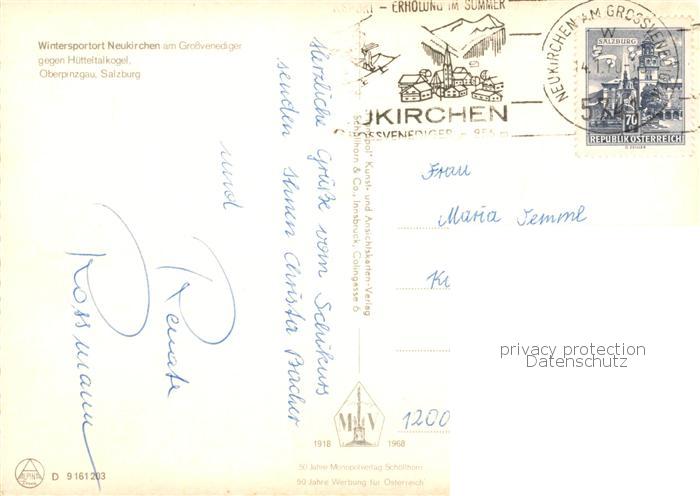 Wintersportort Neukirchen am Großvenediger
gegen Hütteltalkogel,
Oberpinzgau, Salzburg
Herzliche Grüße vom Schikurs
senden Ihnen Christa Bacher
und
Renate
Rossmann
D 9161203
ALPINA
Schöllhorn & Co., Innsbruck, Colingasse 6
Kunst- und Ansichtskarten-Verlag
M V
1918 1968
50 Jahre Monopolverlag Schöllhorn
50 Jahre Werbung für Österreich
- ERHOLUNG IM SOMMER
UKIRCHEN
NEUKIRCHEN AM GROSSVENEDIGER
SALZBURG
70
REPUBLIK ÖSTERREICH
Frau
Maria Semml
1200
privacy protection
Datenschutz